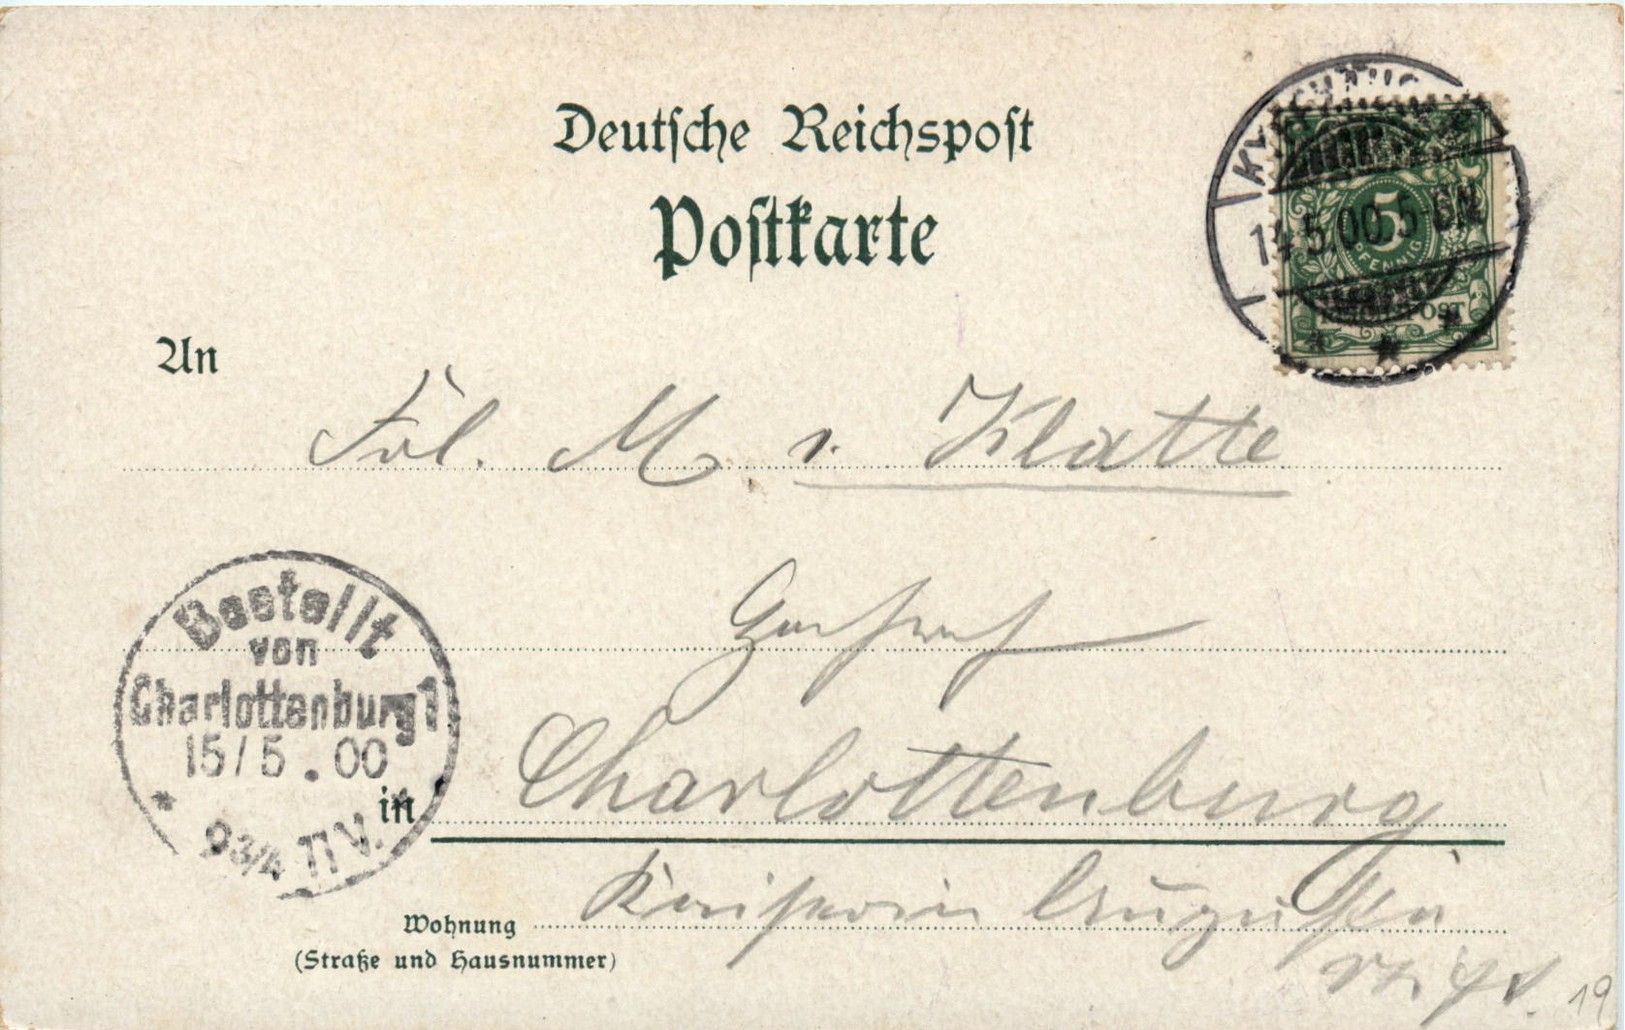 Deutsche Reichspost
Postkarte
14.5.00.5-6N.
5
PFENNIG
REICHSPOST
An
Frl. M v. Klatte
Bestellt
von
Charlottenburg 1
15/5.00
9 3/4 - 11 V.
in Charlottenburg
Wohnung Kaiserin Augusta
(Straße und Hausnummer)
19